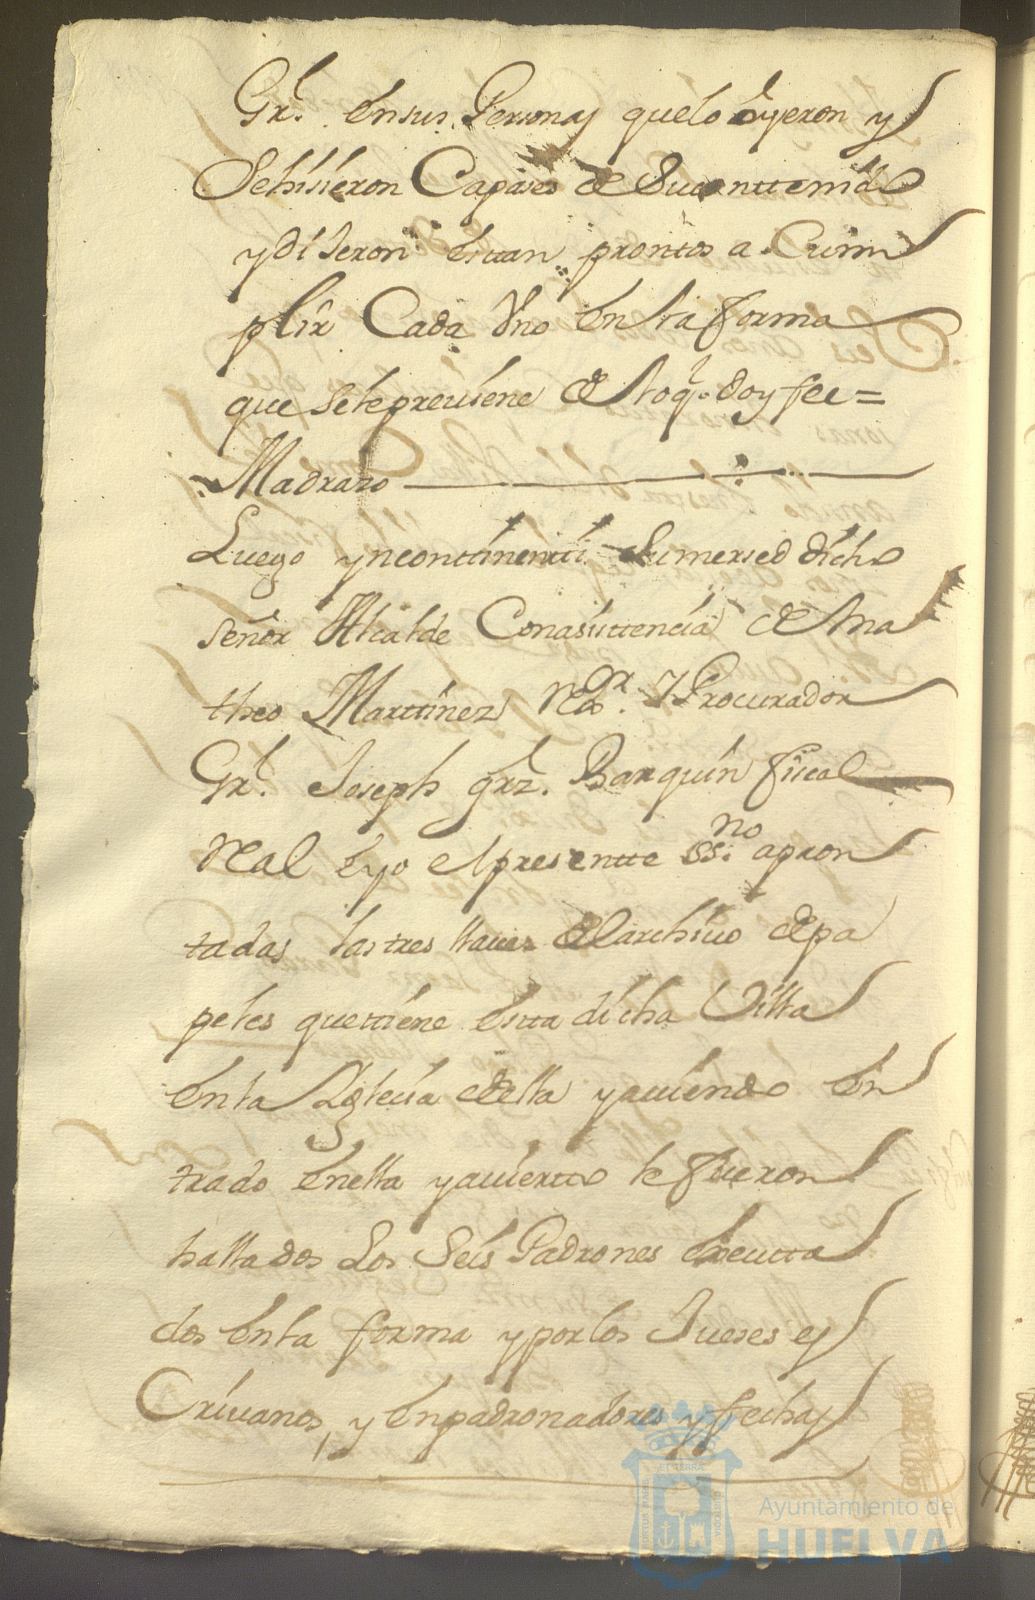 Grl. en sus Personas que lo oyeron y
Se hisieron Capases de Su conttenido
y diseron esttan prontos a Cum
plir Cada Uno en la forma
que se le previene de lo q. doy fee =
Madrazo
Luego yncontinentti Su mersed dicho
señor Alcalde Con asisttencia de Ma
theo Marttinez Rdor. y Procurador
Grl. Joseph grz. Barquin fiscal
Real e yo el presentte ssno. apron
tadas las tres llaves del archivo de pa
peles que ttiene estta dicha Villa
en la Yglecia de ella y aviendo en
trado en ella y aviertto le fueron
hallados Los Seis Padrones executta
dos en la forma y por los Jueses es
Crivanos, y enpadronadores y fechas
Ayuntamiento de
HUELVA